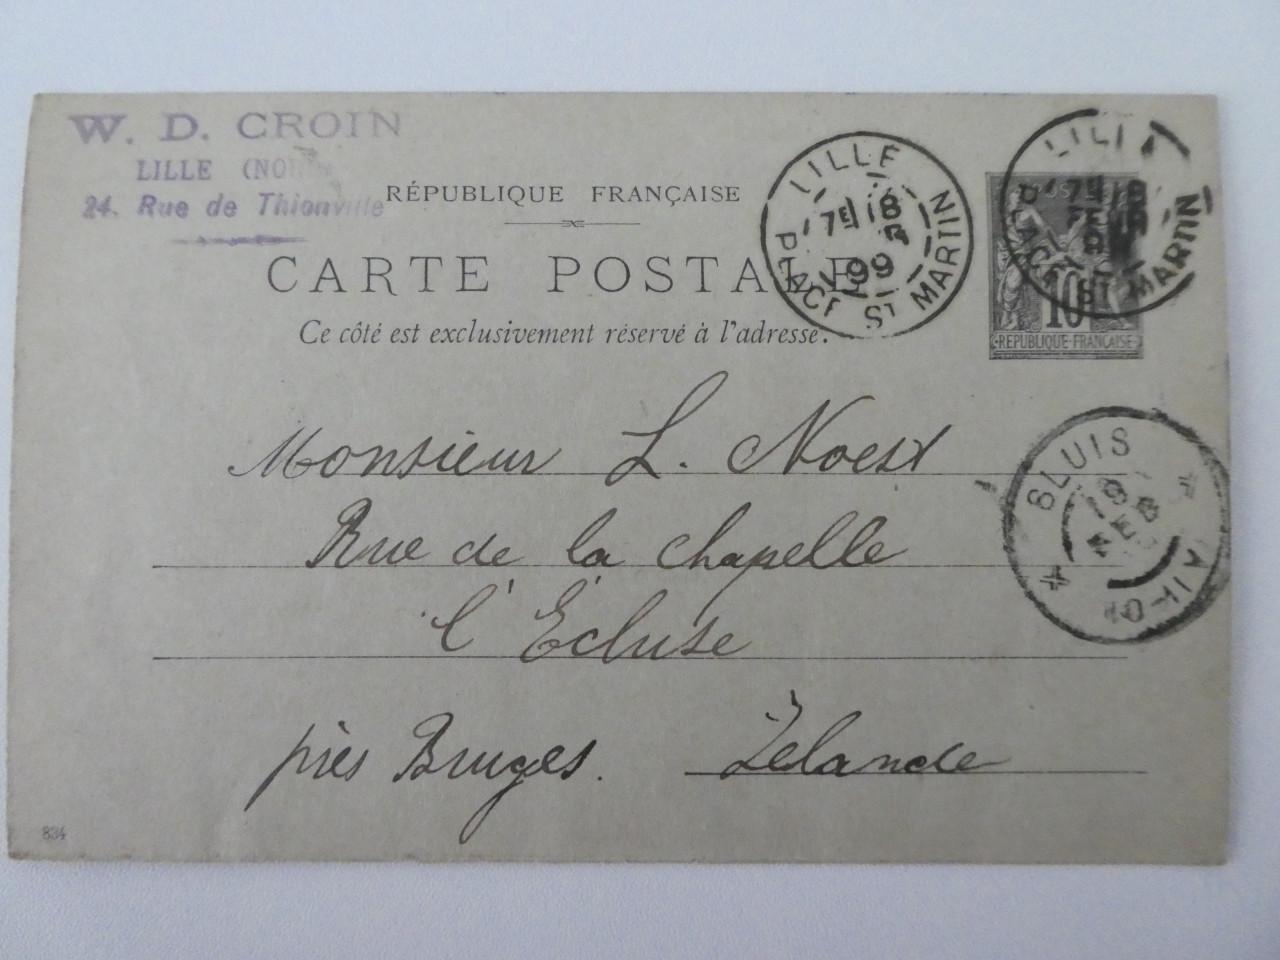 W. D. CROIN
LILLE (NO
24, Rue de Thionville
RÉPUBLIQUE FRANÇAISE
CARTE POSTALE
Ce côté est exclusivement réservé à l'adresse.
LILLE
7E 18
99
PLACE ST MARTIN
LILL
7E 18
FEVR
PLACE ST MARTIN
10
REPUBLIQUE FRANÇAISE
Monsieur L. Noest
Rue de la chapelle
l'Ecluse
près Bruges. Zélande
SLUIS
19
FEB
834